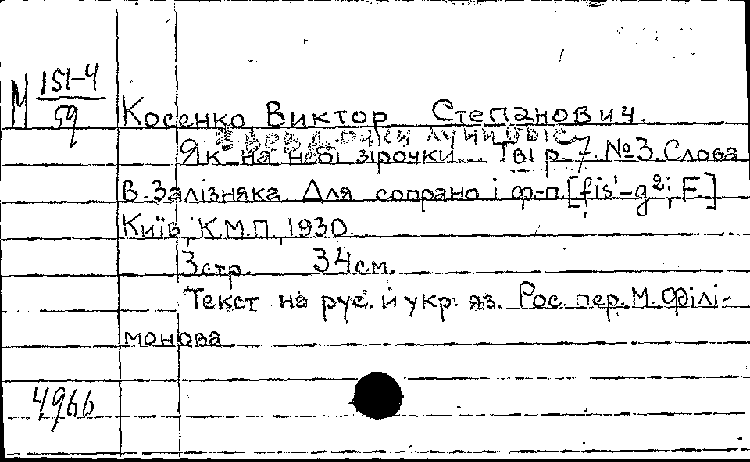 М 151-4
59
Косенко Виктор Степанович.
Як на небі зірочки... Твір 7. №3. Слова
В. Залізняка. Для сопрано і ф-п. [fis¹-g²; F.]
Київ, К.М.П., 1930
3 стр. 34 см.
Текст на рус. и укр. яз. Рос. пер. М. Філі-
монова
4966